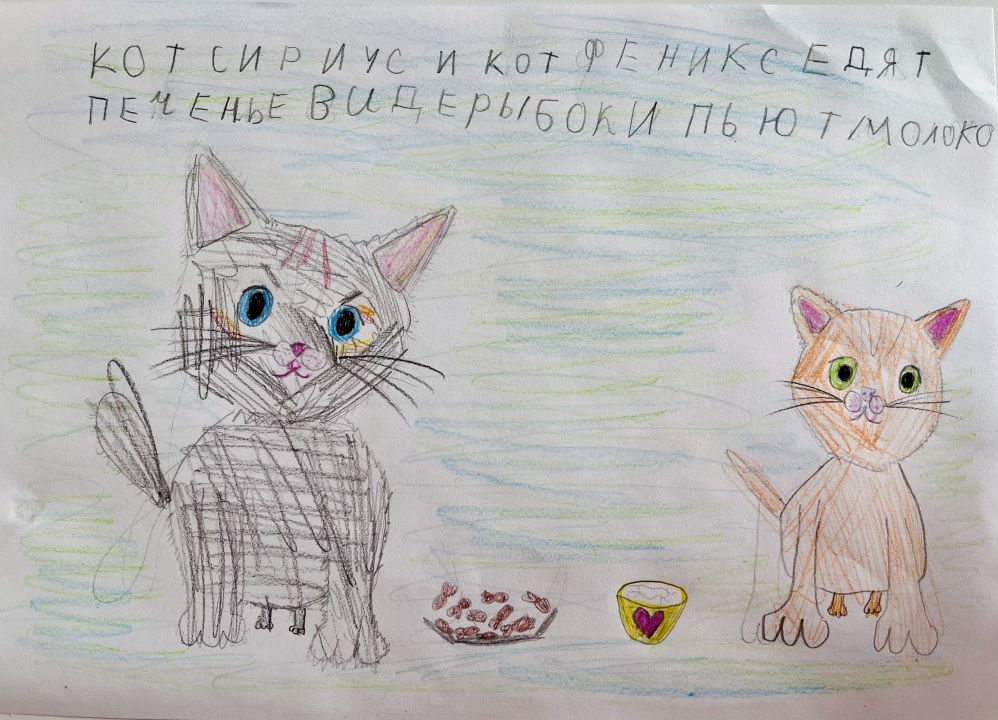 КОТ СИРИУС И КОТ ФЕНИКС ЕДЯТ
ПЕЧЕНЬЕ ВИДЕ РЫБОК И ПЬЮТ МОЛОКО